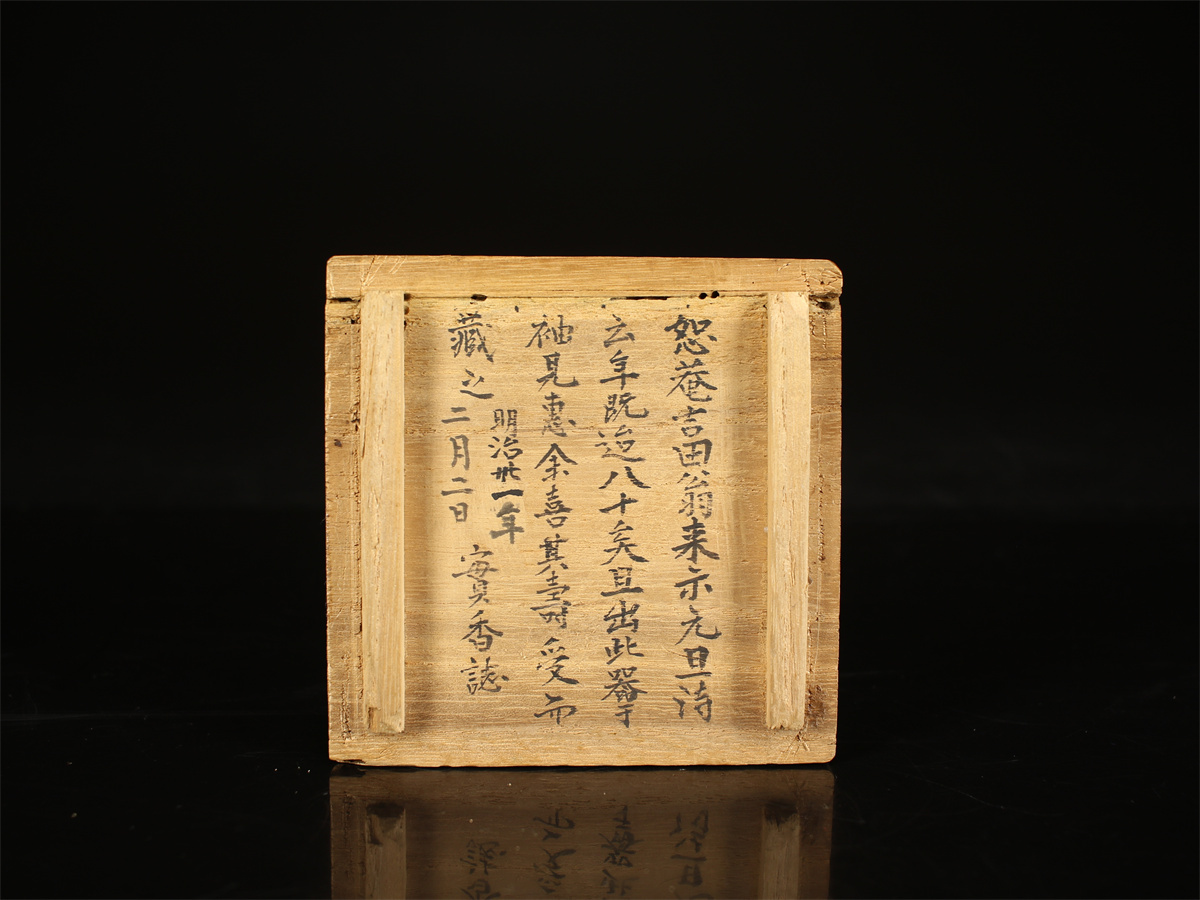 恕菴吉田翁来示元旦詩
云年既迨八十矣且出此器于
袖見惠余喜其壽受而
藏之
明治卅一年
二月二日
實香誌